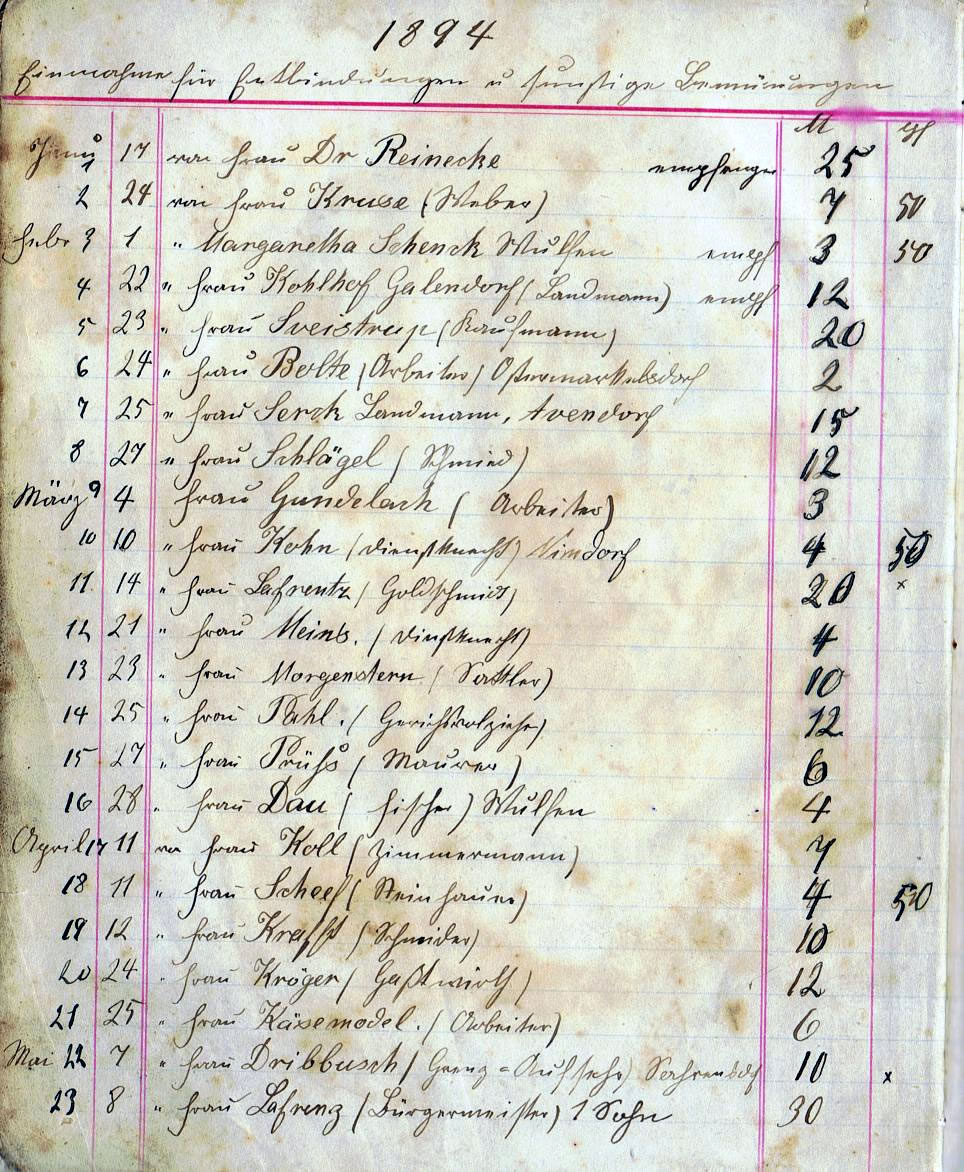 1894
Einnahme für Entbindungen u sonstige Bemüungen
M Pf
Janu 1 17 von Frau Dr Reinecke empfangen 25
2 24 von Frau Kruse (Weber) 7 50
Febr 3 1 " Margaretha Schenck Wulfen empf 3 50
4 22 " Frau Kohlhof Galendorf (Landmann) empf 12
5 23 " Frau Sveistrup (Kaufmann) 20
6 24 " Frau Bolte (Arbeiter) Ostermarkelsdorf 2
7 25 " Frau Serck Landmann, Avendorf 15
8 27 " Frau Schlägel (Schmied) 12
März 9 4 Frau Gundelach (Arbeiter) 3
10 10 " Frau Kohn (Dienstknecht) 4 50
11 14 " Frau Lafrentz (Goldschmidt) 20 x
12 21 " Frau Meins. (Dienstknecht) 4
13 23 " Frau Morgenstern (Sattler) 10
14 25 " Frau Pahl. (Gerichtsvolzieher) 12
15 27 " Frau Prühs (Maurer) 6
16 28 " Frau Dau (Fischer) Wulfen 4
April 17 11 von Frau Koll (Zimmermann) 7
18 11 " Frau Scheel (Steinhauer) 4 50
19 12 " Frau Krafft (Schneider) 10
20 24 " Frau Kröger (Gaßtwirth) 12
21 25 " Frau Käsemodel. (Arbeiter) 6
Mai 22 7 " Frau Dribbusch (Grenz=Aufseher) Sahrensdf 10 x
23 8 " Frau Lafrenz (Bürgermeister) 1 Sohn 30